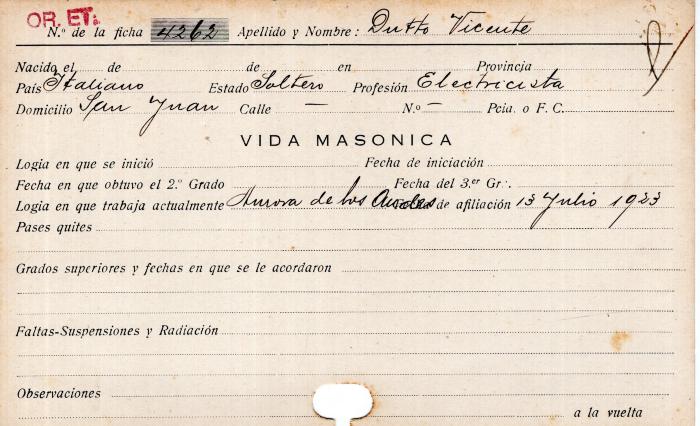 OR. ET.
N.º de la ficha 4262 Apellido y Nombre: Dutto Vicente
Nacido el de de en Provincia
País Italiano Estado Soltero Profesión Electricista
Domicilio San Juan Calle — N.º — Pcia. o F. C.
VIDA MASONICA
Logia en que se inició Fecha de iniciación
Fecha en que obtuvo el 2.º Grado Fecha del 3.er Gr.·.
Logia en que trabaja actualmente Aurora de los Andes Fecha de afiliación 13 Julio 1923
Pases quites
Grados superiores y fechas en que se le acordaron
Faltas-Suspensiones y Radiación
Observaciones
a la vuelta